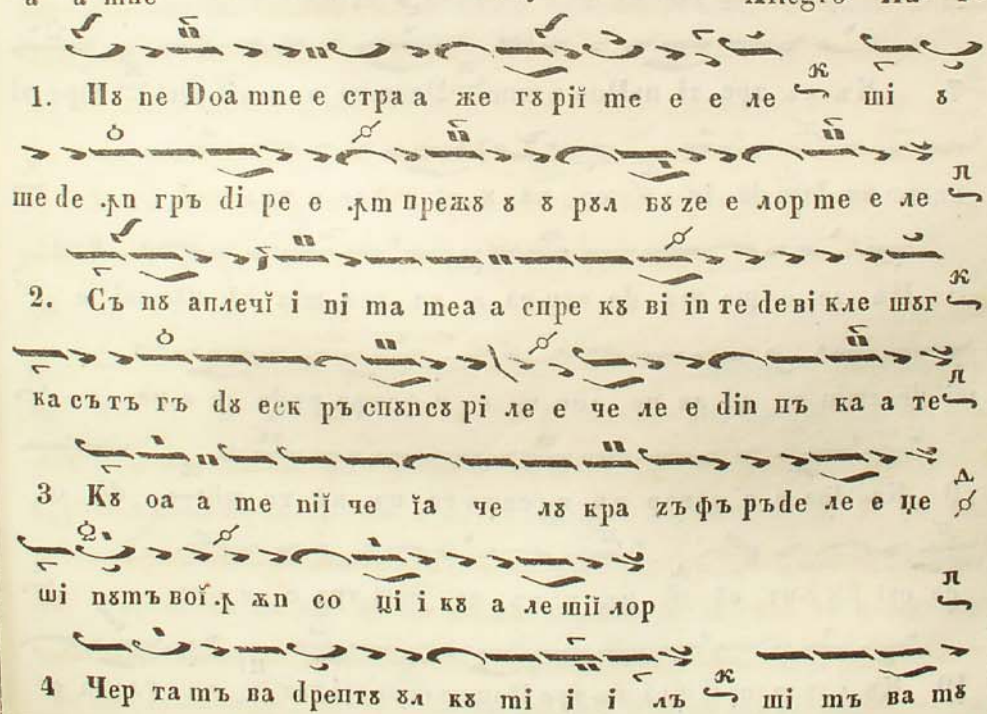 1. Пꙋ пе Doa mne e стра a же гꙋ рiĭ me e e ле к ші ꙋ
ше de .ꙟn гръ di ре e .ꙟm прежꙋ ꙋ ꙋ рꙋл бꙋ ze e лор me e ле л
2. Съ nꙋ аплечĭ і ni та mea a спре кꙋ ві in те de ві кле шꙋг к
ка съ тъ гъ dꙋ еск ръ спꙋnсꙋ рі ле e че ле e din пъ ка а те л
3 Кꙋ оа а me niĭ че ĭa че лꙋ кра zъ фъ ръ de ле e џе д
ші nꙋmъ воĭ .ꙟ жn со ці і кꙋ а ле шiĭ лор л
4 Чер та mъ ва dрептꙋ ꙋл кꙋ mі і і лъ к ші mъ ва mꙋ